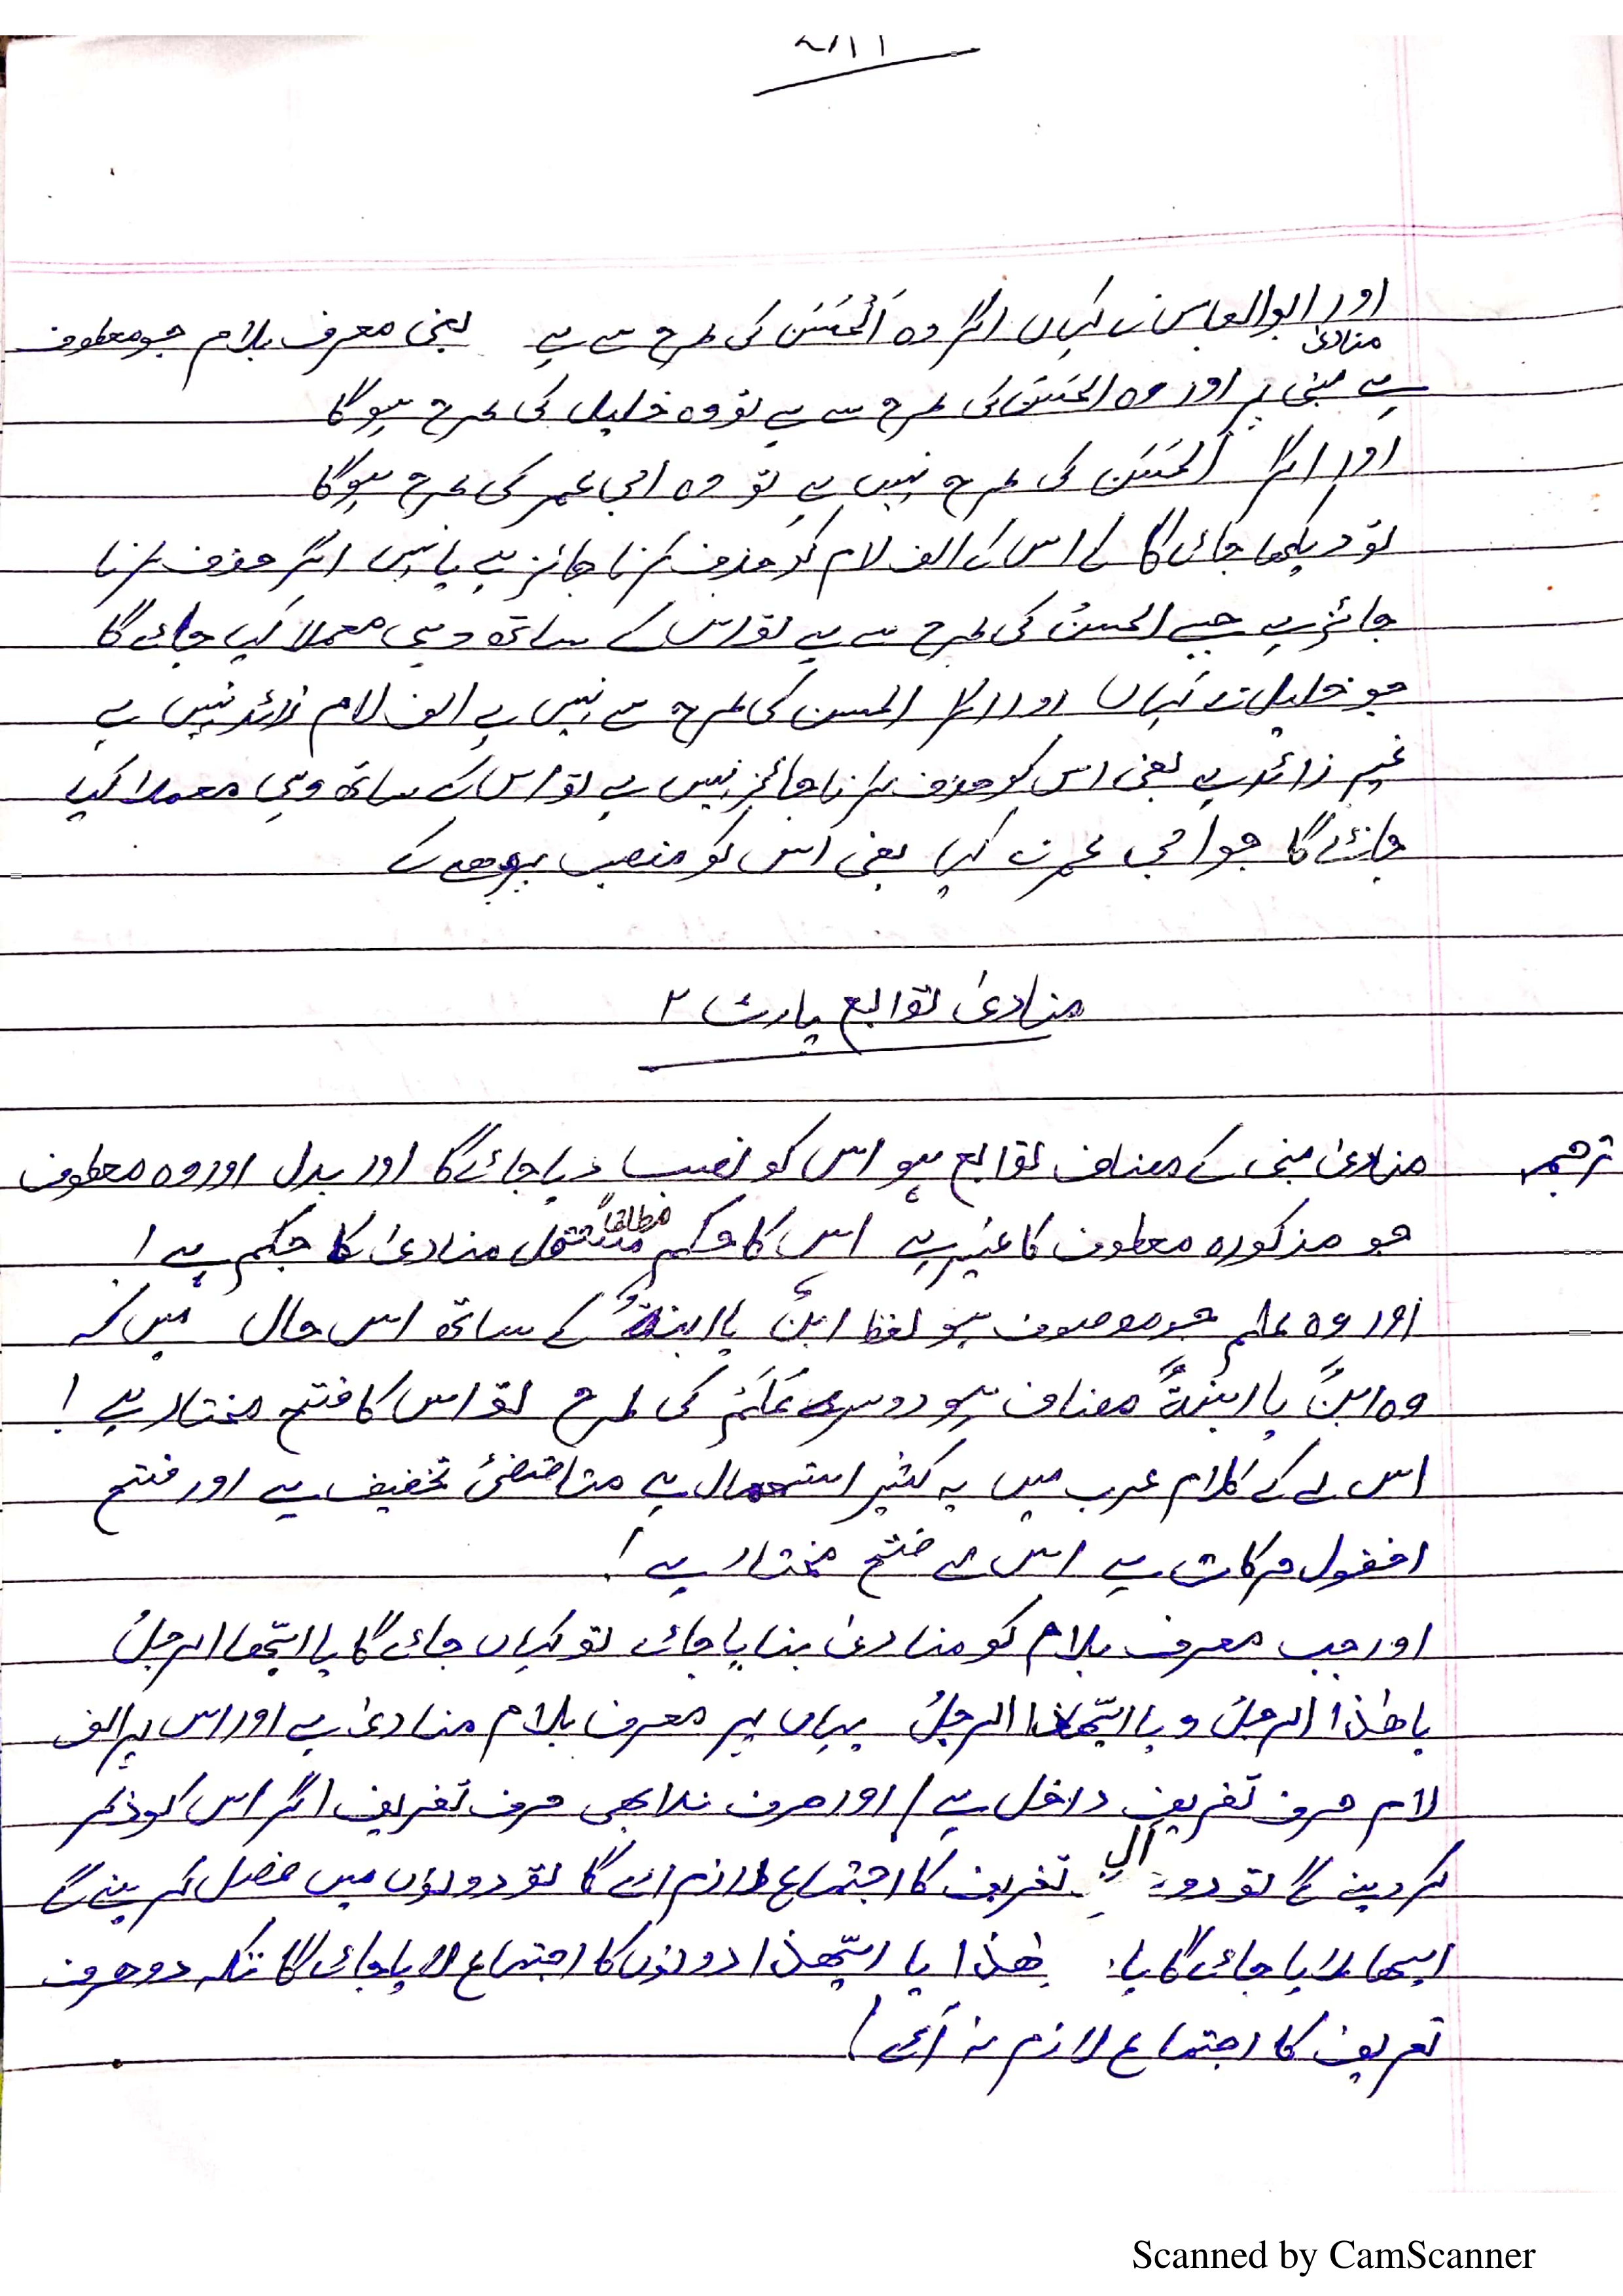 اور ابوالعباس نے کہاں اگر وہ اَلْحَسَن کی طرح سے ہے یعنی معرف بلام جو معطوف
منادیٰ
ہے مبنی پر اور وہ الحَسَن کی طرح سے ہے تو وہ خلیل کی طرح ہوگا
اور اگر اَلحَسَن کی طرح نہیں ہے تو وہ ابی عمر کی طرح ہوگا
تو دیکھا جائے گا کے اس کے الف لام کو حذف کرنا جائز ہے یا نہیں اگر حذف کرنا
جائز ہے جیسے الحسنُ کی طرح سے ہے تو اس کے ساتھ وہی معملا کیا جائے گا
جو خلیل نے کہاں اور اگر الحسن کی طرح سے نہیں ہے الف لام زائد نہیں ہے
غیر زائد ہے یعنی اس کو حذف کرنا جائز نہیں ہے تو اس کے ساتھ وہی معملا کیا
جائے گا جو ابی عمر نے کہا یعنی اس کو منصب پڑھے گے
منادیٰ توابع پارٹ ۲
ترجمہ منادیٰ مبنی کے مضاف توابع ہو اس کو نصب دیا جائے گا اور بدل اور وہ معطوف
جو مذکورہ معطوف کا غیر ہے اس کا حکم مطلقاً مستقل منادیٰ کا حکم ہے !
اور وہ علم جو موصوف ہو لفظ ابنٌ یا ابنۃٌ کے ساتھ اس حال میں کہ
وہ ابنٌ یا ابنۃٌ مضاف ہو دوسرے عَلَمْ کی طرح تو اس کا فتح مختار ہے !
اس لے کے کلام عرب میں یہ کثیر استعمال ہے متاضضئ تخفیف ہے اور فتح
اخفول حرکات ہے اس لے فتح مختار ہے !
اور جب معرف بلام کو منادیٰ بنایا جائے تو کہاں جائے گا یا ایّھا الرجلُ
یا ھٰذا الرجلُ و یا ایّھٰذا الرجلُ یہاں پر معرف بلام منادیٰ ہے اور اس پر الف
لام حرف تعریف داخل ہے / اور حرف ندا بھی حرف تعریف اگر اس کو ذکر
کر دینے گے تو دو الٰہ تعریف کا اجتماع لازم اے گا تو دونوں میں فصل کر ینے گے
ایھا لایا جائے گا یا ھٰذا یا ایّھذا دونوں کا اجتماع لایا جائے گا تکہ دو حرف
تعریف کا اجتماع لازم نہ آئے !
Scanned by CamScanner